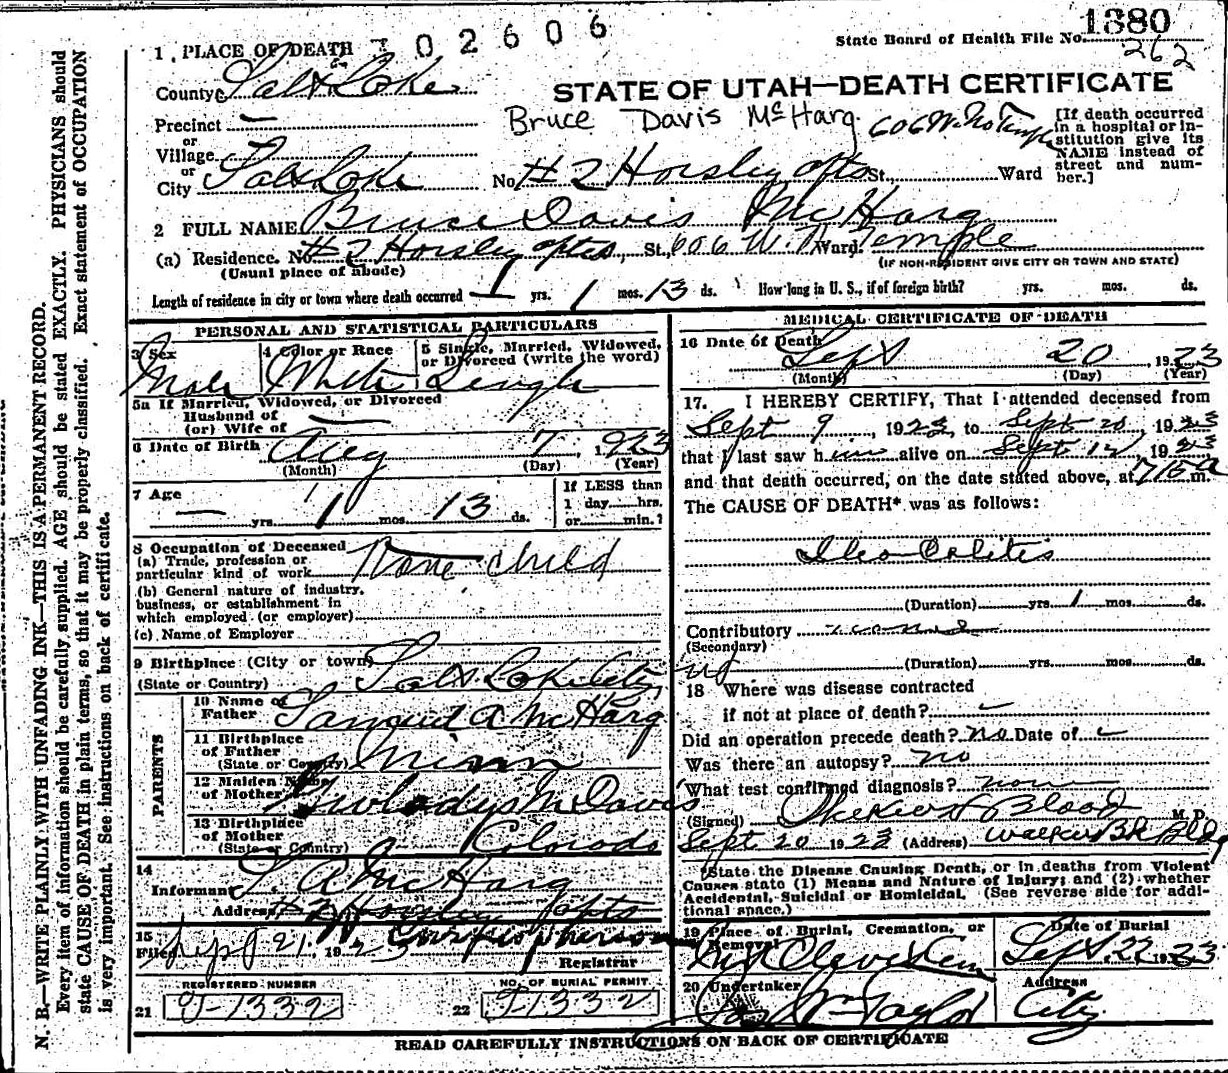 1380
State Board of Health File No.
262
1. PLACE OF DEATH 02606
County Salt Lake
STATE OF UTAH—DEATH CERTIFICATE
Bruce Davis McHarg 606 W. No Temple
[If death occurred in a hospital or institution give its NAME instead of street and number.]
Precinct —
or
Village
or
City Salt Lake No. #2 Horsley apts St., Ward
2 FULL NAME Bruce Davis McHarg
(a) Residence. No. #2 Horsley apts St., 606 W. N. Ward. Temple
(Usual place of abode) (IF NON-RESIDENT GIVE CITY OR TOWN AND STATE)
Length of residence in city or town where death occurred — yrs. 1 mos. 13 ds. How long in U. S., if of foreign birth? yrs. mos. ds.
PERSONAL AND STATISTICAL PARTICULARS
3 Sex Male 4 Color or Race White 5 Single, Married, Widowed, or Divorced (write the word) Single
5a If Married, Widowed, or Divorced
Husband of
(or) Wife of —
6 Date of Birth Aug 7, 1923
(Month) (Day) (Year)
7 Age — yrs. 1 mos. 13 ds.
If LESS than
1 day hrs.
or min.?
8 Occupation of Deceased
(a) Trade, profession or
particular kind of work None child
(b) General nature of industry,
business, or establishment in
which employed (or employer)
(c) Name of Employer
9 Birthplace (City or town) Salt Lake City
(State or Country)
PARENTS
10 Name of Father Samuel A McHarg
11 Birthplace of Father
(State or Country) Minn
12 Maiden Name
of Mother Gwladys M Davis
13 Birthplace
of Mother
(State or Country) Colorado
14
Informant S A McHarg
Address #2 Horsley Apts
15
Filed Sept 21, 1923
Registrar
REGISTERED NUMBER NO. OF BURIAL PERMIT
21 J-1332 22 J-1332
MEDICAL CERTIFICATE OF DEATH
16 Date of Death Sept 20 1923
(Month) (Day) (Year)
17. I HEREBY CERTIFY, That I attended deceased from
Sept 9, 1923, to Sept 20, 1923
that I last saw him alive on Sept 12, 1923
and that death occurred, on the date stated above, at 715 a m.
The CAUSE OF DEATH* was as follows:
Ileo Colitis
(Duration) yrs. 1 mos. ds.
Contributory none
(Secondary)
(Duration) yrs. mos. ds.
18 Where was disease contracted
if not at place of death? —
Did an operation precede death? no Date of
Was there an autopsy? no
What test confirmed diagnosis? none
(Signed) Blood M.D.
Sept 20 1923 (Address) Walker Bk Bldg
*State the Disease Causing Death, or in deaths from Violent
Causes state (1) Means and Nature of Injury; and (2) whether
Accidental, Suicidal or Homicidal. (See reverse side for additional space.)
19 Place of Burial, Cremation, or Removal Date of Burial
Mt Olivet Cem Sept. 22 1923
20 Undertaker Address
Taylor City
READ CAREFULLY INSTRUCTIONS ON BACK OF CERTIFICATE
N. B.—WRITE PLAINLY WITH UNFADING INK—THIS IS A PERMANENT RECORD.
Every item of information should be carefully supplied. AGE should be stated EXACTLY. PHYSICIANS should
state CAUSE OF DEATH in plain terms, so that it may be properly classified. Exact statement of OCCUPATION
is very important. See instructions on back of certificate.